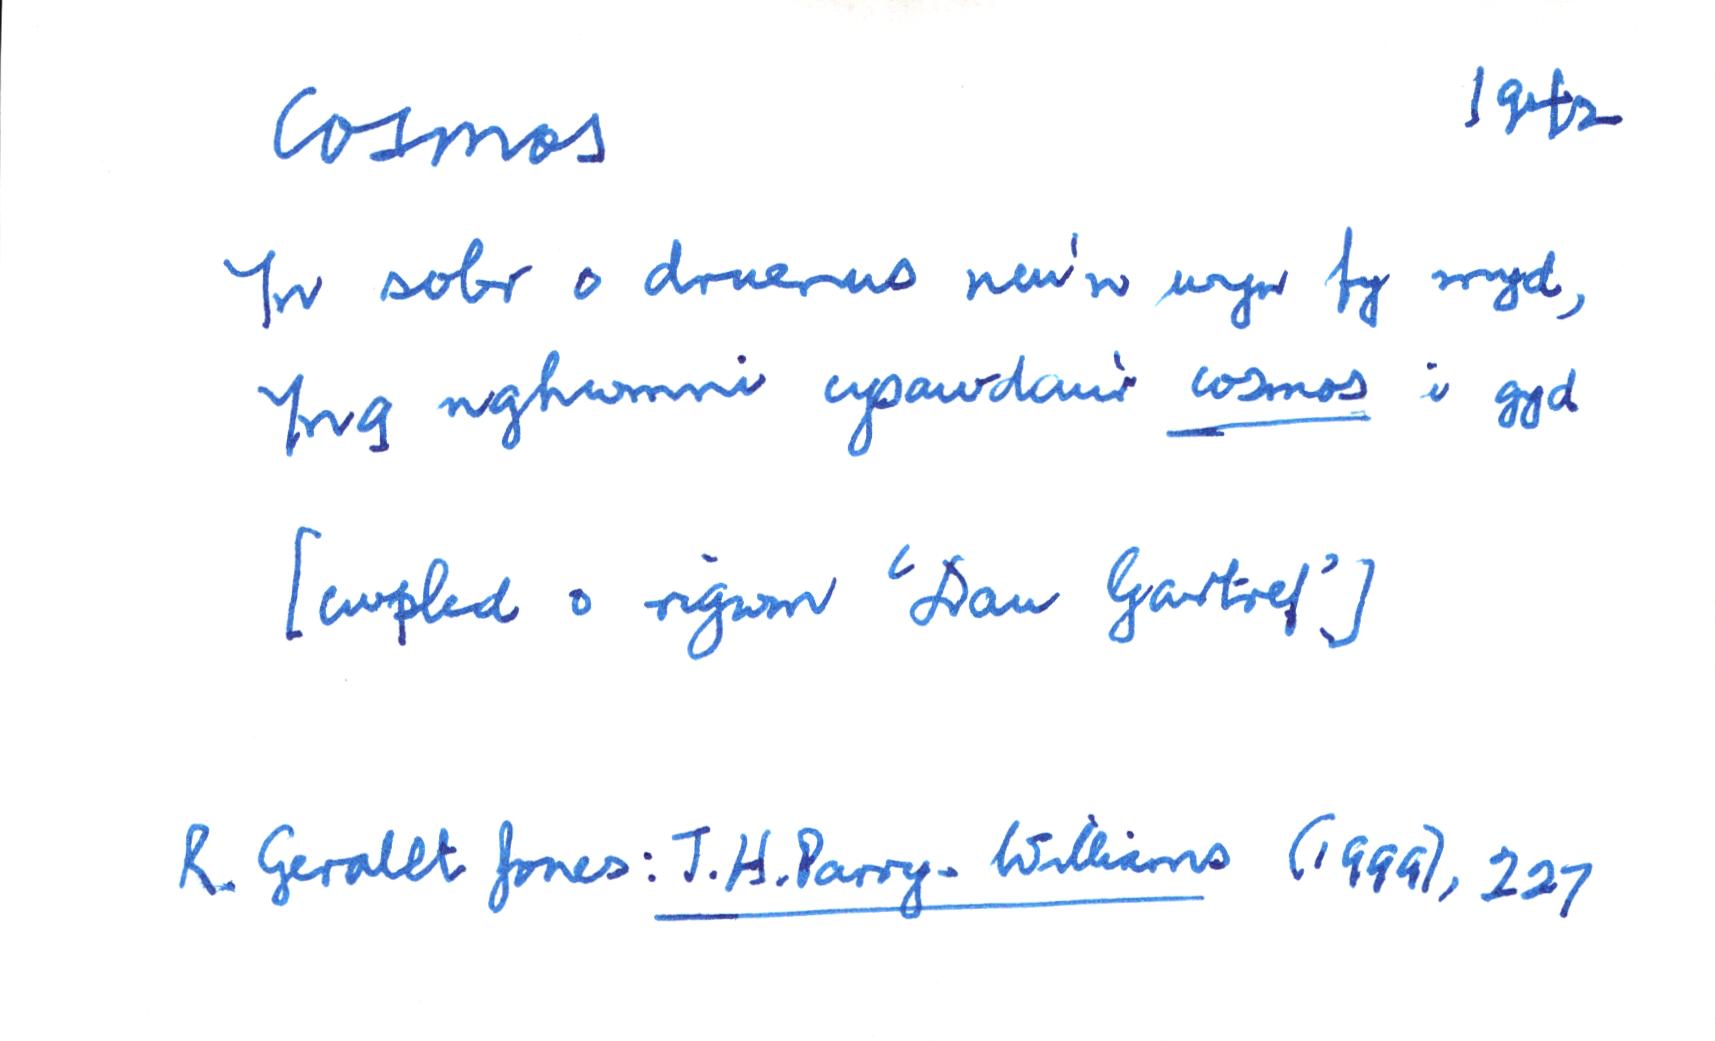 Cosmos 1942
Yn sobr o druenus neu'n wyn fy myd,
Yng nghwmni cysawdau'r cosmos i gyd
[cwpled o rigwm ‘Dau Gartref’]
R. Gerallt Jones: T.H.Parry-Williams (1999), 227